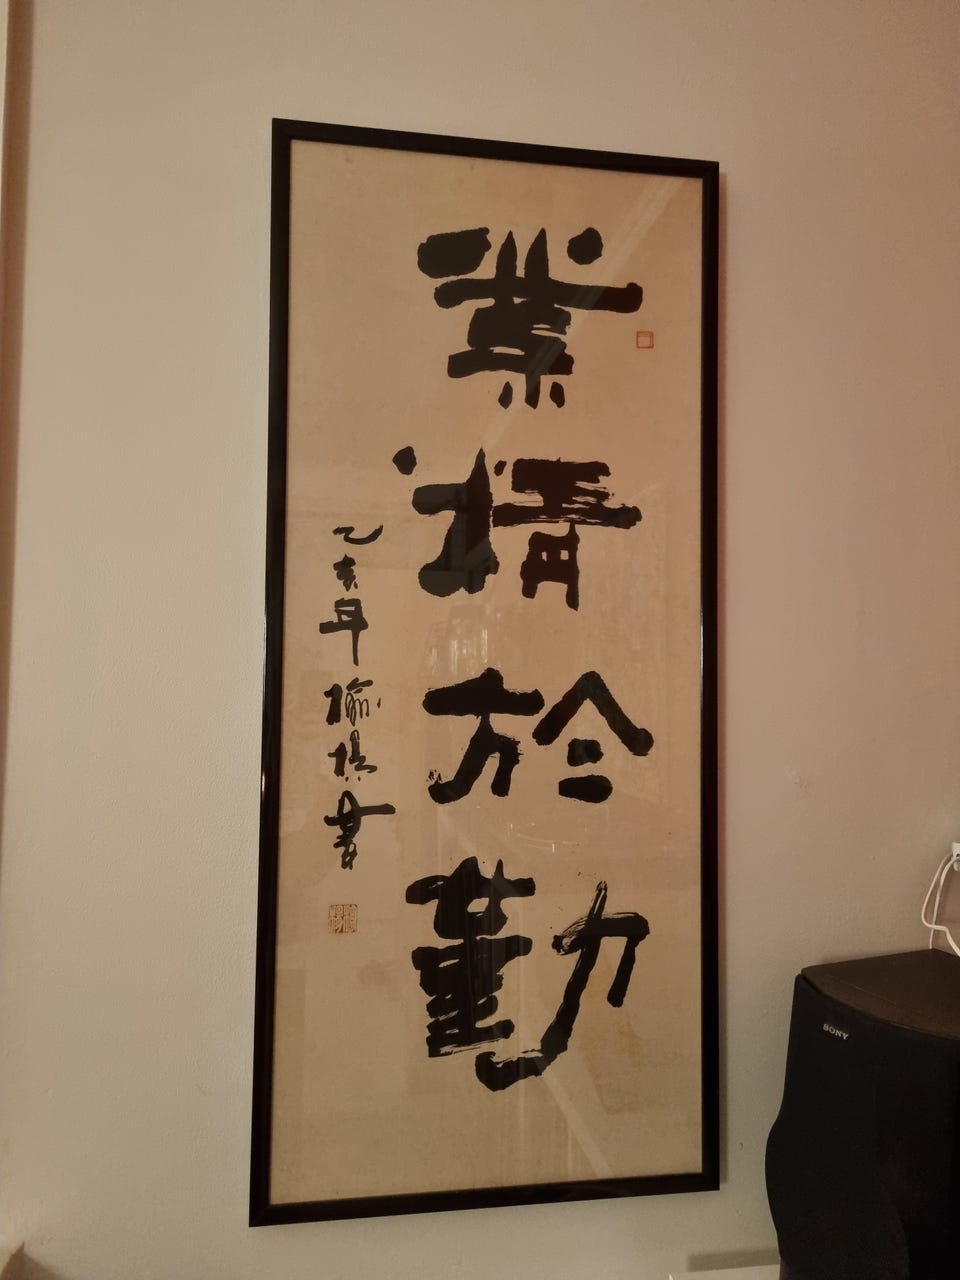 業精於勤
乙亥年 榆楨書
SONY